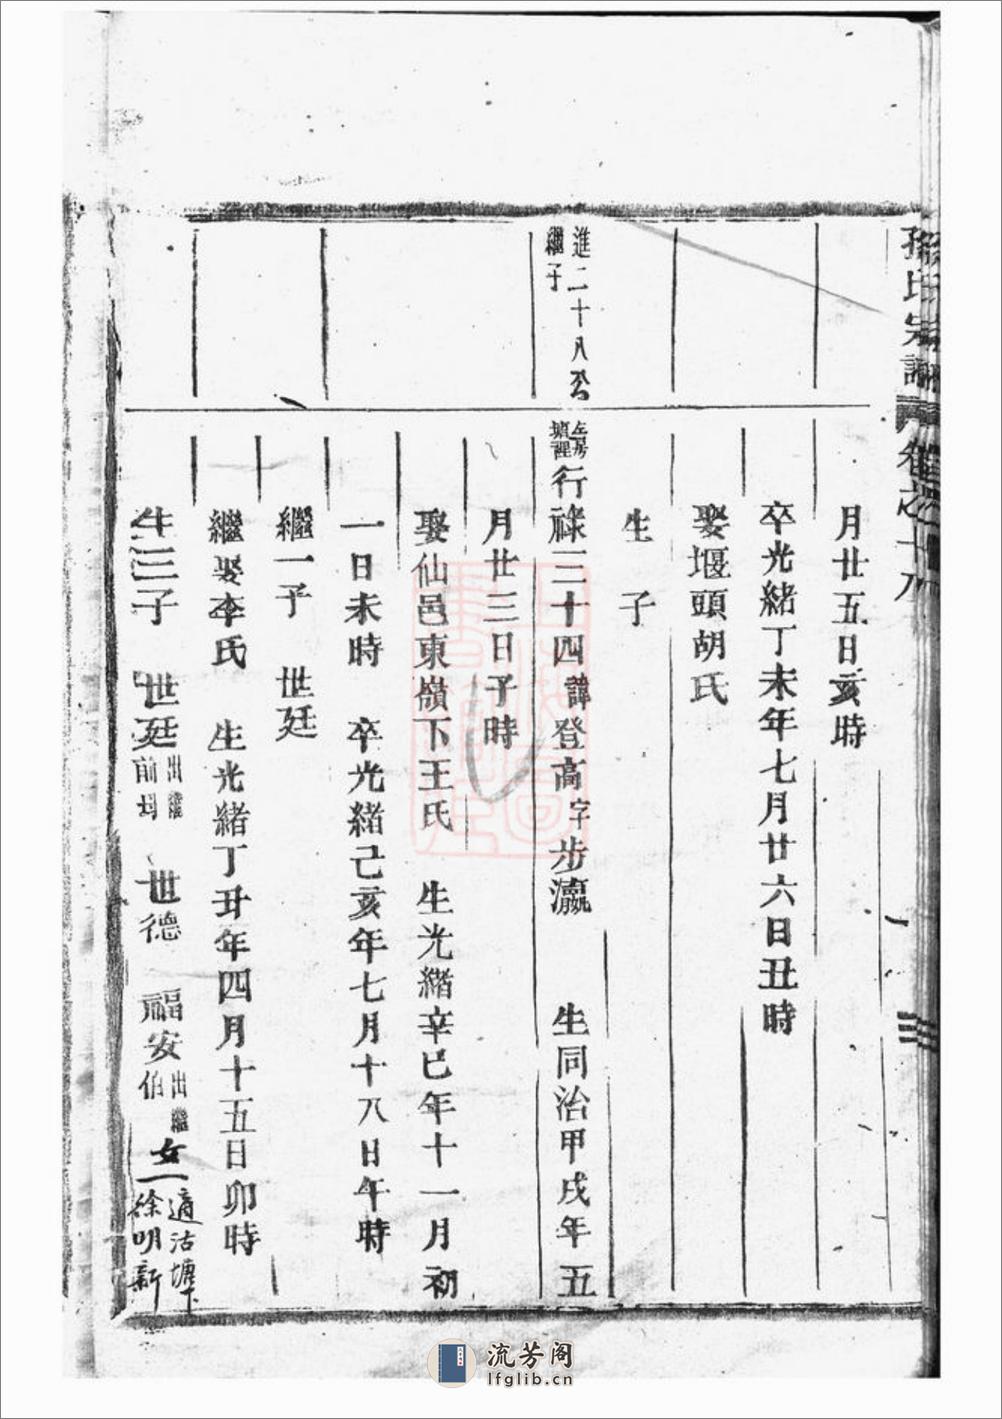 孫氏宗譜 卷之十八
三
月廿五日亥時
卒光緒丁未年七月廿六日丑時
娶堰頭胡氏
生 子
進二十八公
繼子
行祿三十四諱登高字步瀛 生同治甲戌年五
月廿三日子時
娶仙邑東嶺下王氏 生光緒辛巳年十一月初
一日未時 卒光緒己亥年七月十八日午時
繼一子 世廷
繼娶李氏 生光緒丁丑年四月十五日卯時
生三子 世廷出繼前 世德 福安出繼伯 女一適沽塘下徐明新
流芳阁
lfglib.cn